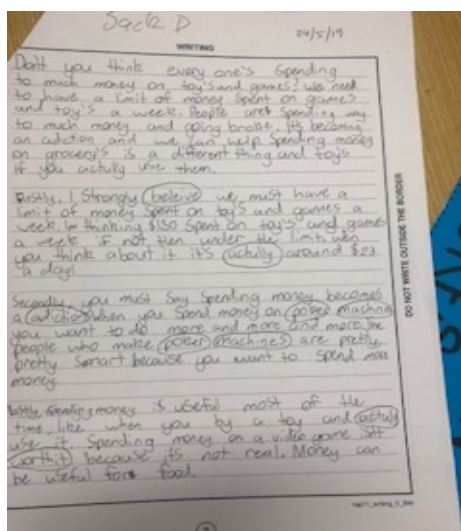 Jack D
24/5/19
WRITING
Don't you think every one's spending
to much money on toy's and games! We need
to have a limit of money spent on games
and toy's a week. People are spending way
to much money and going broke. It's becoming
an adiction and we can help. Spending money
on grocery's is a different thing and toy's
if you actully use them.
Firstly, I Strongly beleive we must have a
limit of money spent on toy's and games a
week. Im thinking $150 spent on toy's and games
a week if not then under the limit, wen
you think about it it's actully around $23
a day!
Secondly, you must say spending money becomes
a adiction when you spend money on power machines
you want to do more and more and more, the
people who make power machines are pretty,
pretty smart because you want to spend more
money.
Lastly, spending money is useful most of the
time, like when you by a toy and actuly
use it. Spending money on a video game isn't
worth it because its not real. Money can
be useful for food
DO NOT WRITE OUTSIDE THE BORDER